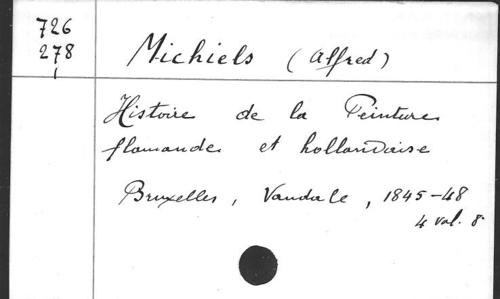 726
278
Michiels (Alfred)
Histoire de la Peinture
flamande et hollandaise
Bruxelles, Vandale, 1845-48
4 vol. 8°